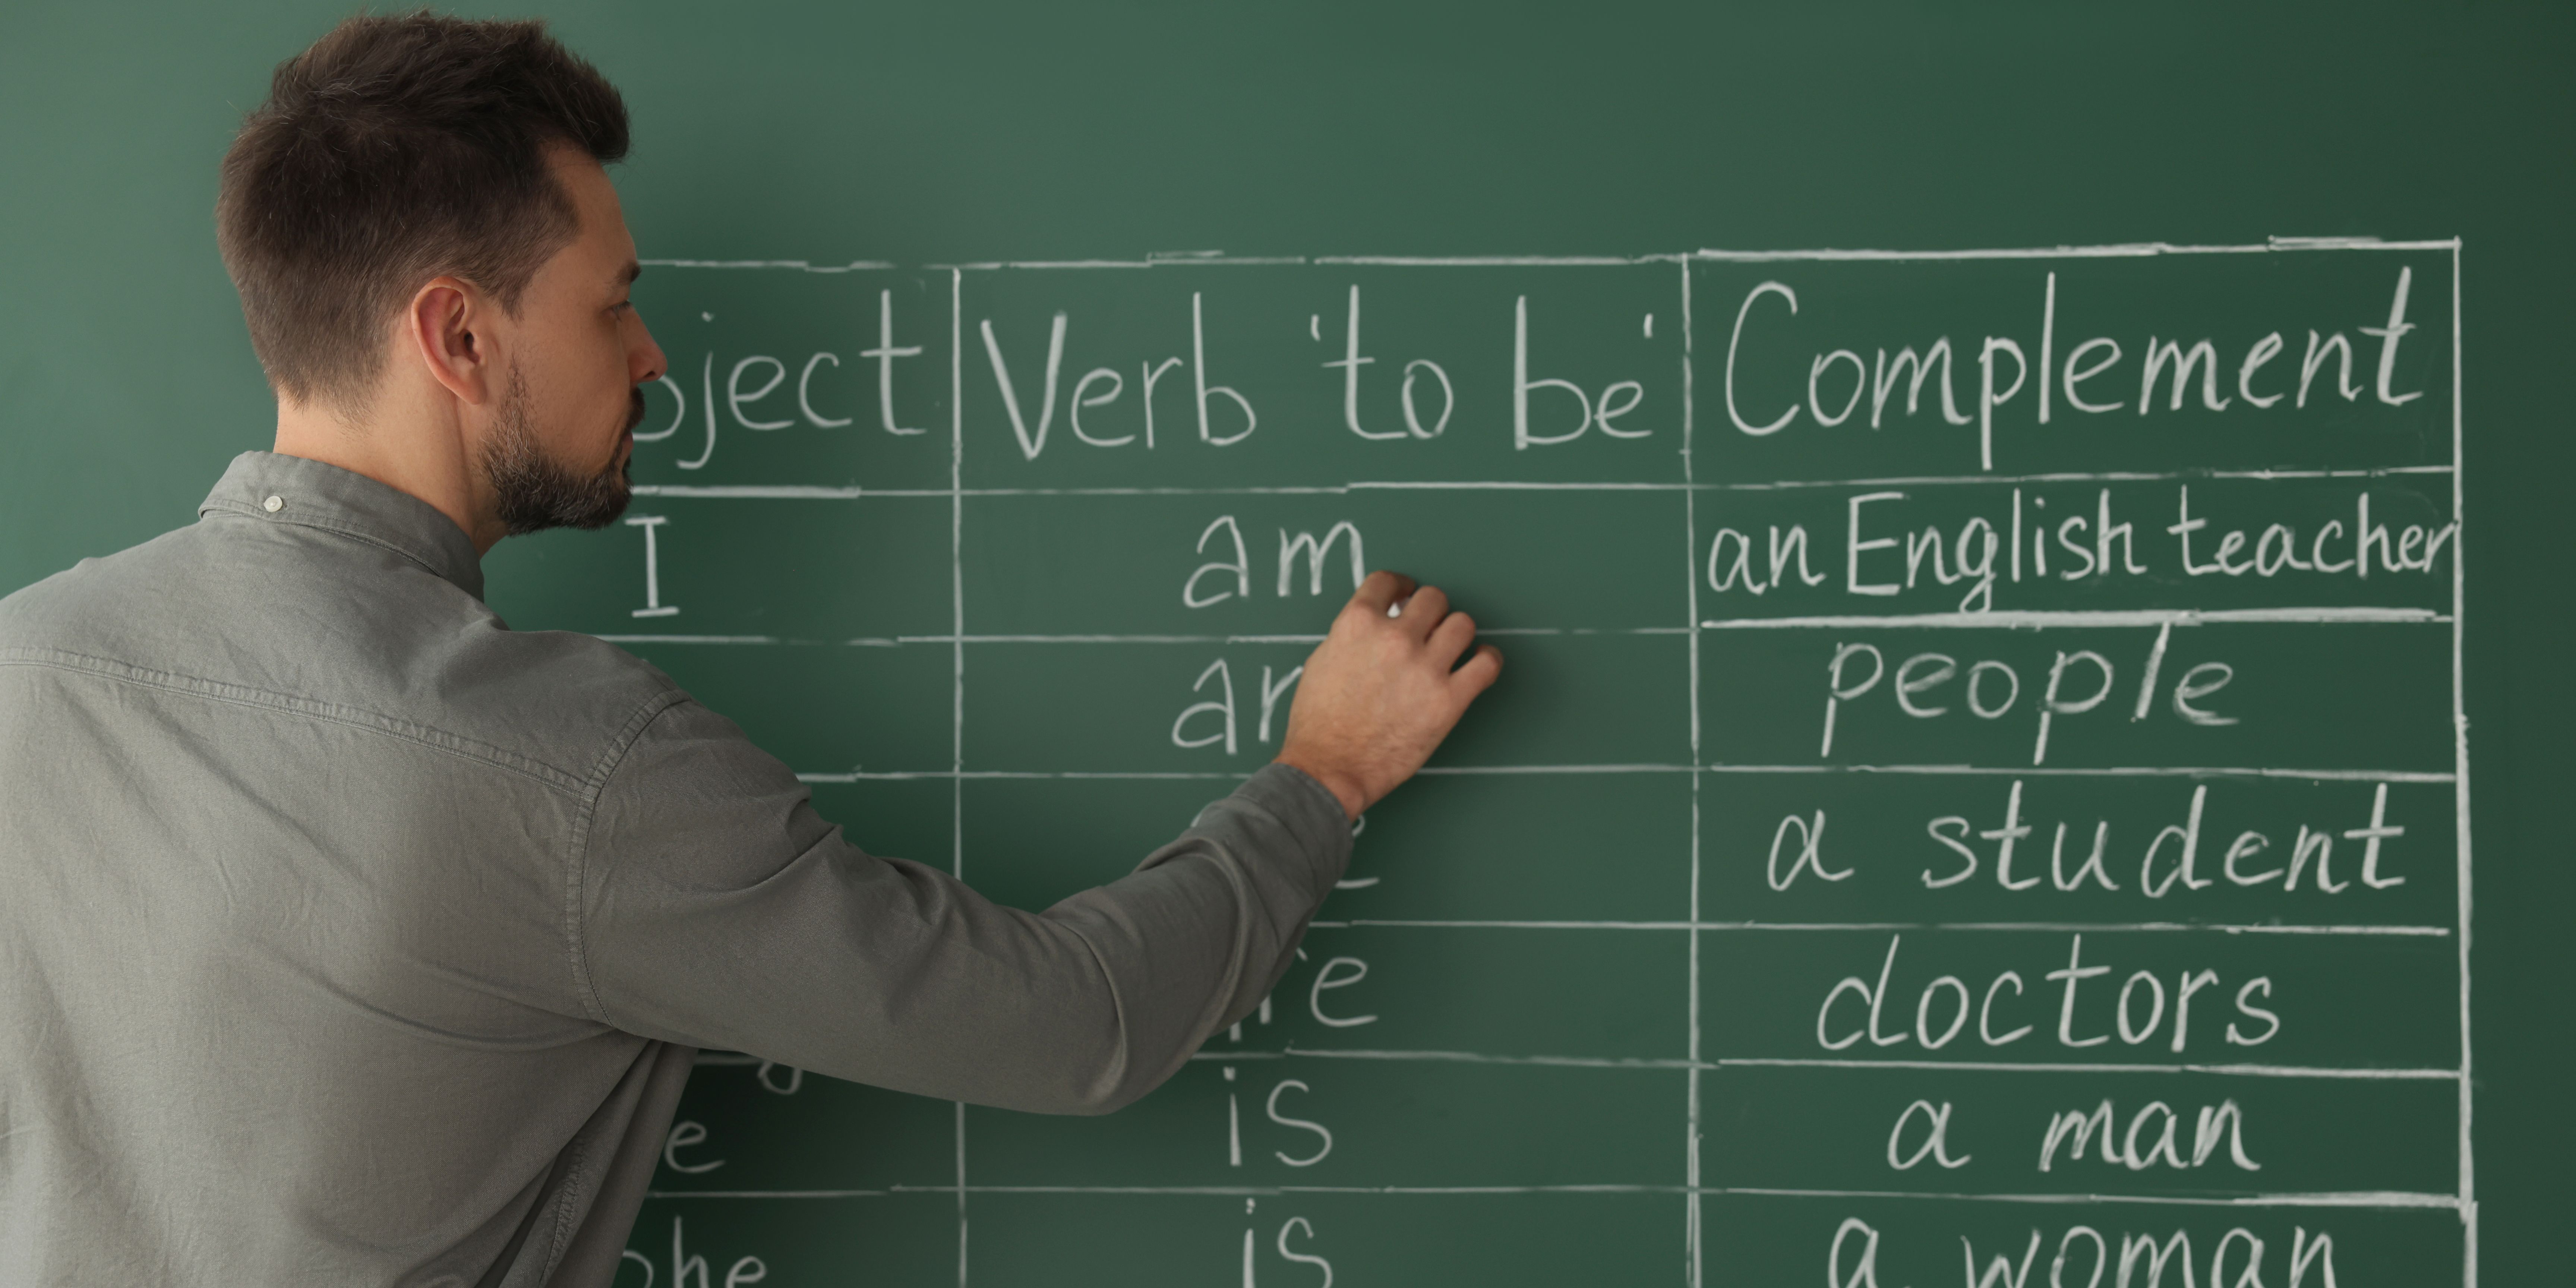 Verb 'to be' Complement
I am an English teacher
people
a student
doctors
is a man
is a woman